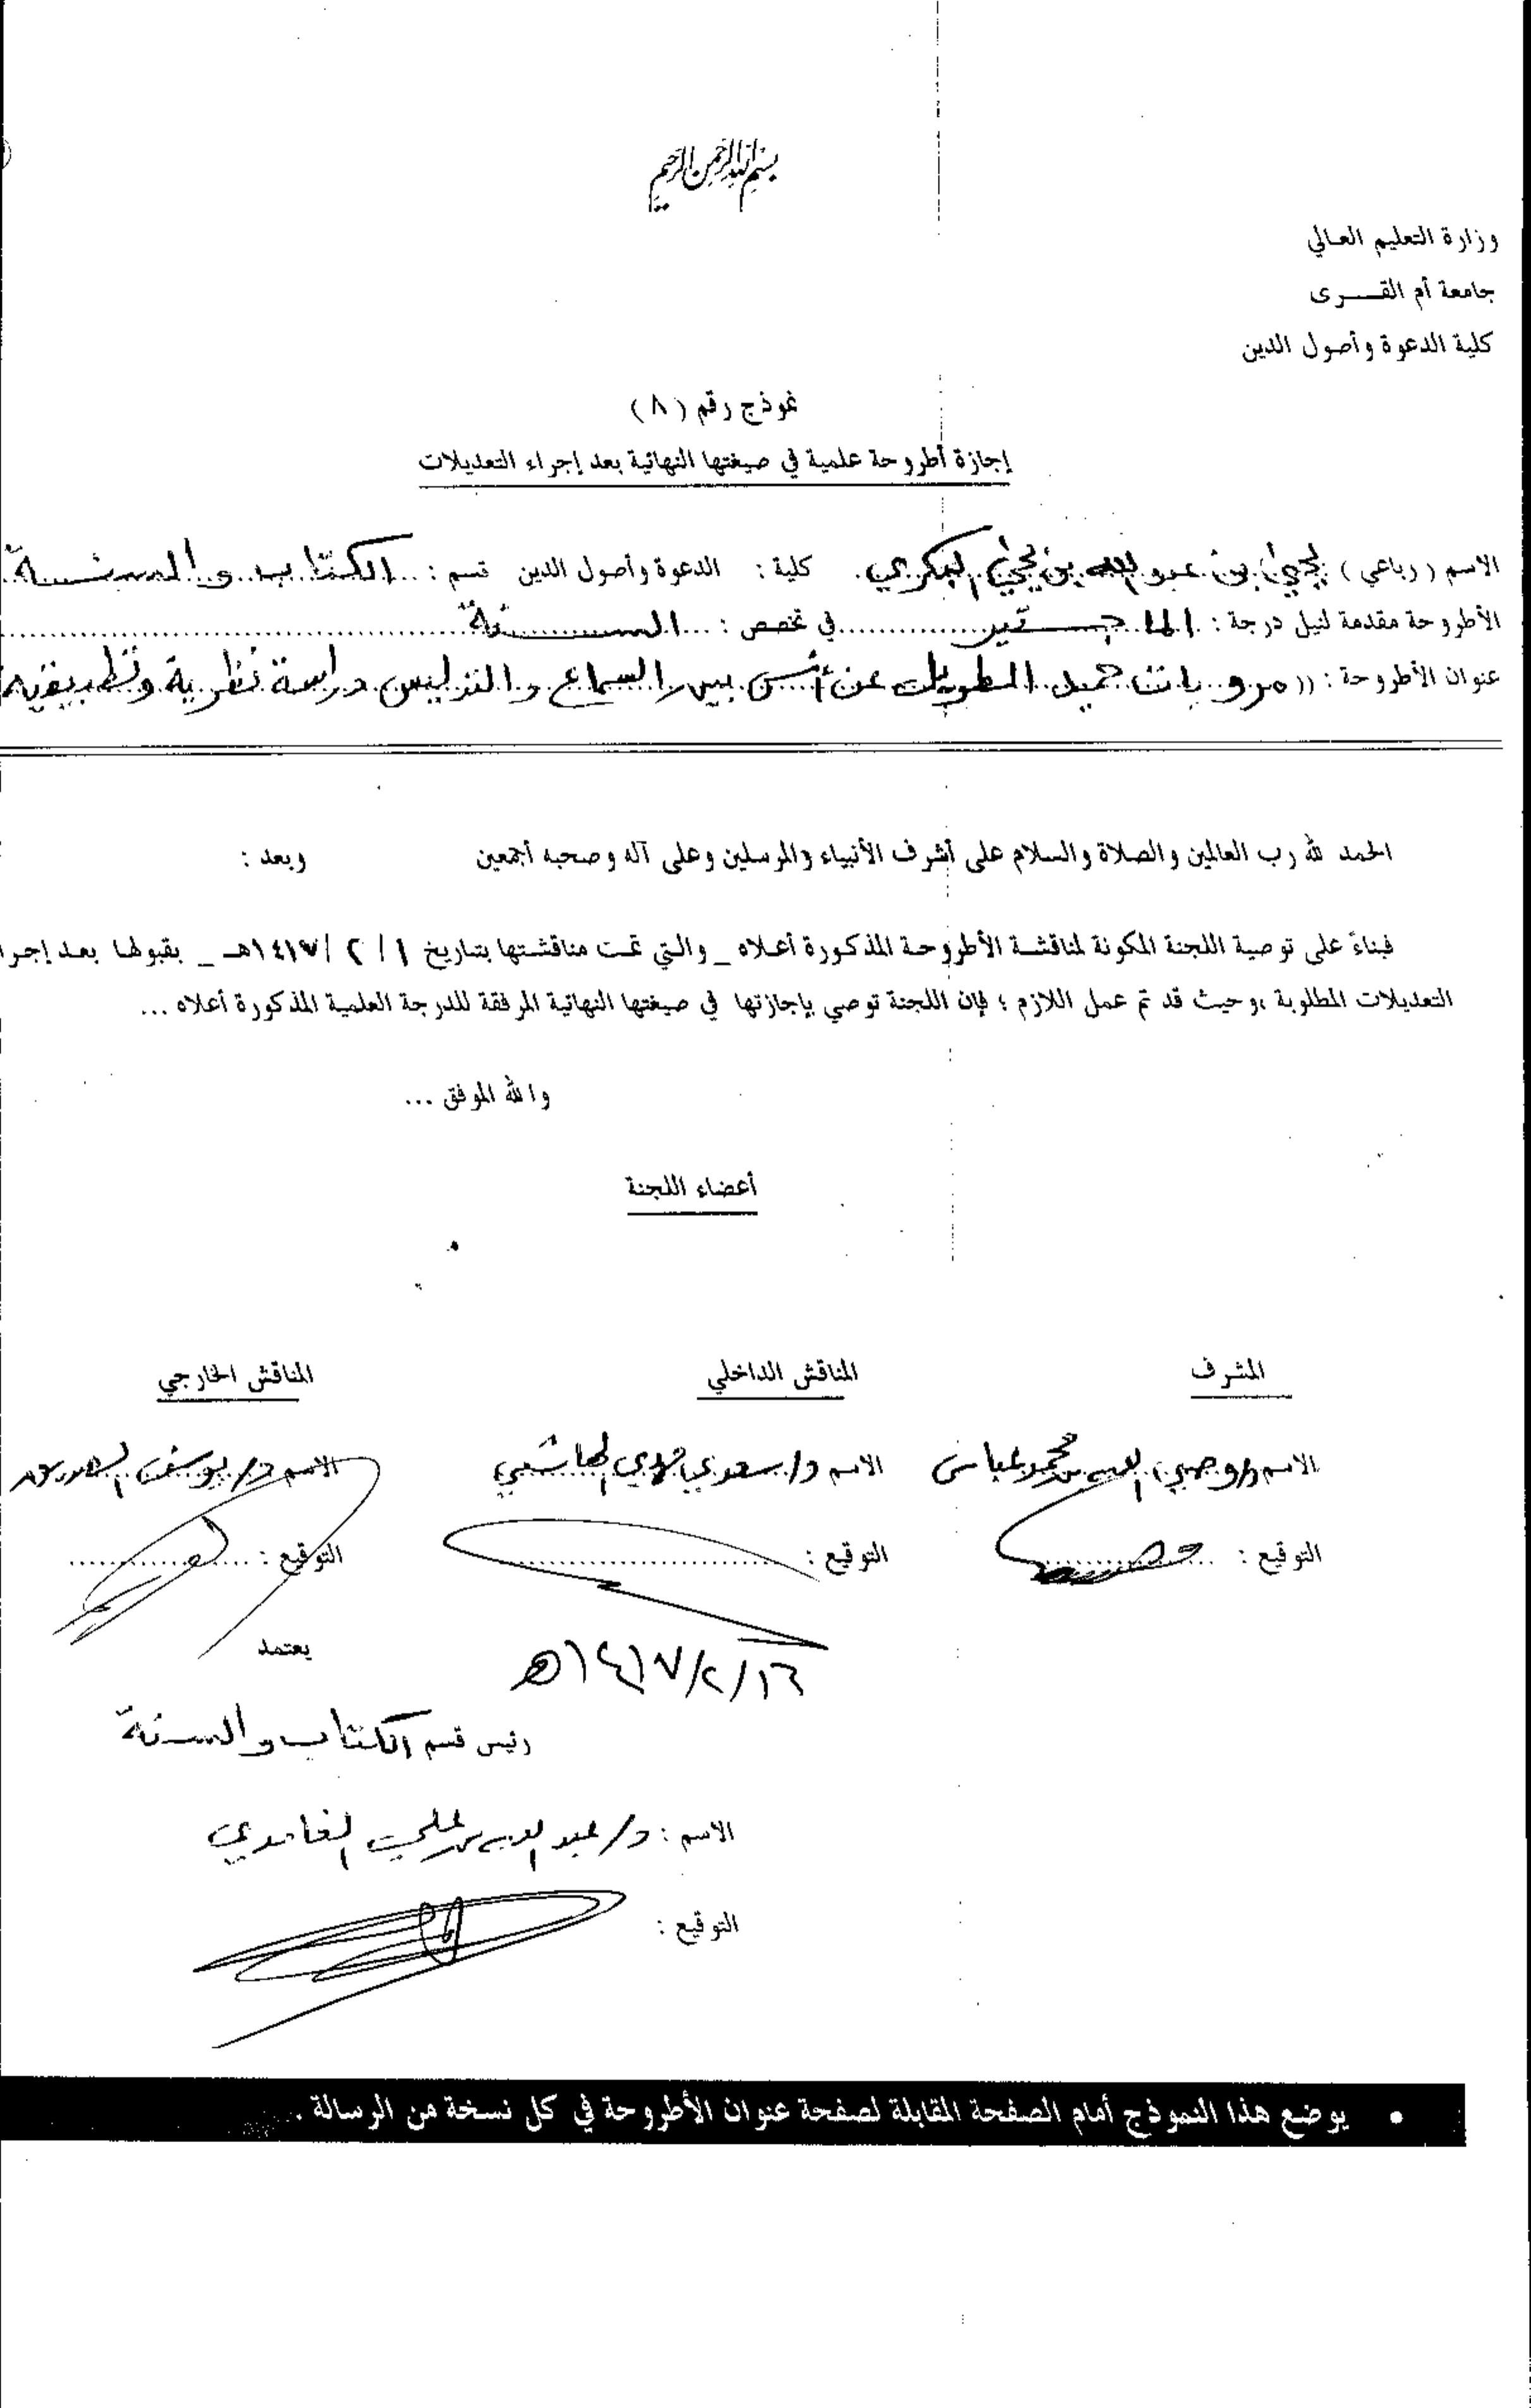 بسم الله الرحمن الرحيم
وزارة التعليم العالي
جامعة أم القــــرى
كلية الدعوة وأصول الدين
نموذج رقم (٨)
إجازة أطروحة علمية في صيغتها النهائية بعد إجراء التعديلات
الاسم (رباعي) يحيى بن عبد الله بن يحيى البكري. كلية : الدعوة وأصول الدين قسم : الكتاب والسنة
الأطروحة مقدمة لنيل درجة : الماجستير في تخصص : السنة
عنوان الأطروحة : (( مرويات حميد الطويل عن أنس بين السماع والتدليس دراسة نظرية وتطبيقية
الحمد لله رب العالمين والصلاة والسلام على أشرف الأنبياء والمرسلين وعلى آله وصحبه أجمعين وبعد :
فبناءً على توصية اللجنة المكونة لمناقشة الأطروحة المذكورة أعلاه _ والتي تمت مناقشتها بتاريخ ١ / ٢ / ١٤١٧هـ _ بقبولها بعد إجرا
التعديلات المطلوبة ،وحيث قد تم عمل اللازم ؛ فإن اللجنة توصي بإجازتها في صيغتها النهائية المرفقة للدرجة العلمية المذكورة أعلاه ...
والله الموفق ...
أعضاء اللجنة
المشرف المناقش الداخلي المناقش الخارجي
الاسم د/وصي الله بن محمد عباس الاسم د/سعدي مهدي الهاشمي الاسم د/يوسف
التوقيع : التوقيع : التوقيع :
يعتمد
١٦/٢/١٤١٧هـ
رئيس قسم الكتاب والسنة
الاسم : د/ عبد الله بن علي الغامدي
التوقيع :
• يوضع هذا النموذج أمام الصفحة المقابلة لصفحة عنوان الأطروحة في كل نسخة من الرسالة .